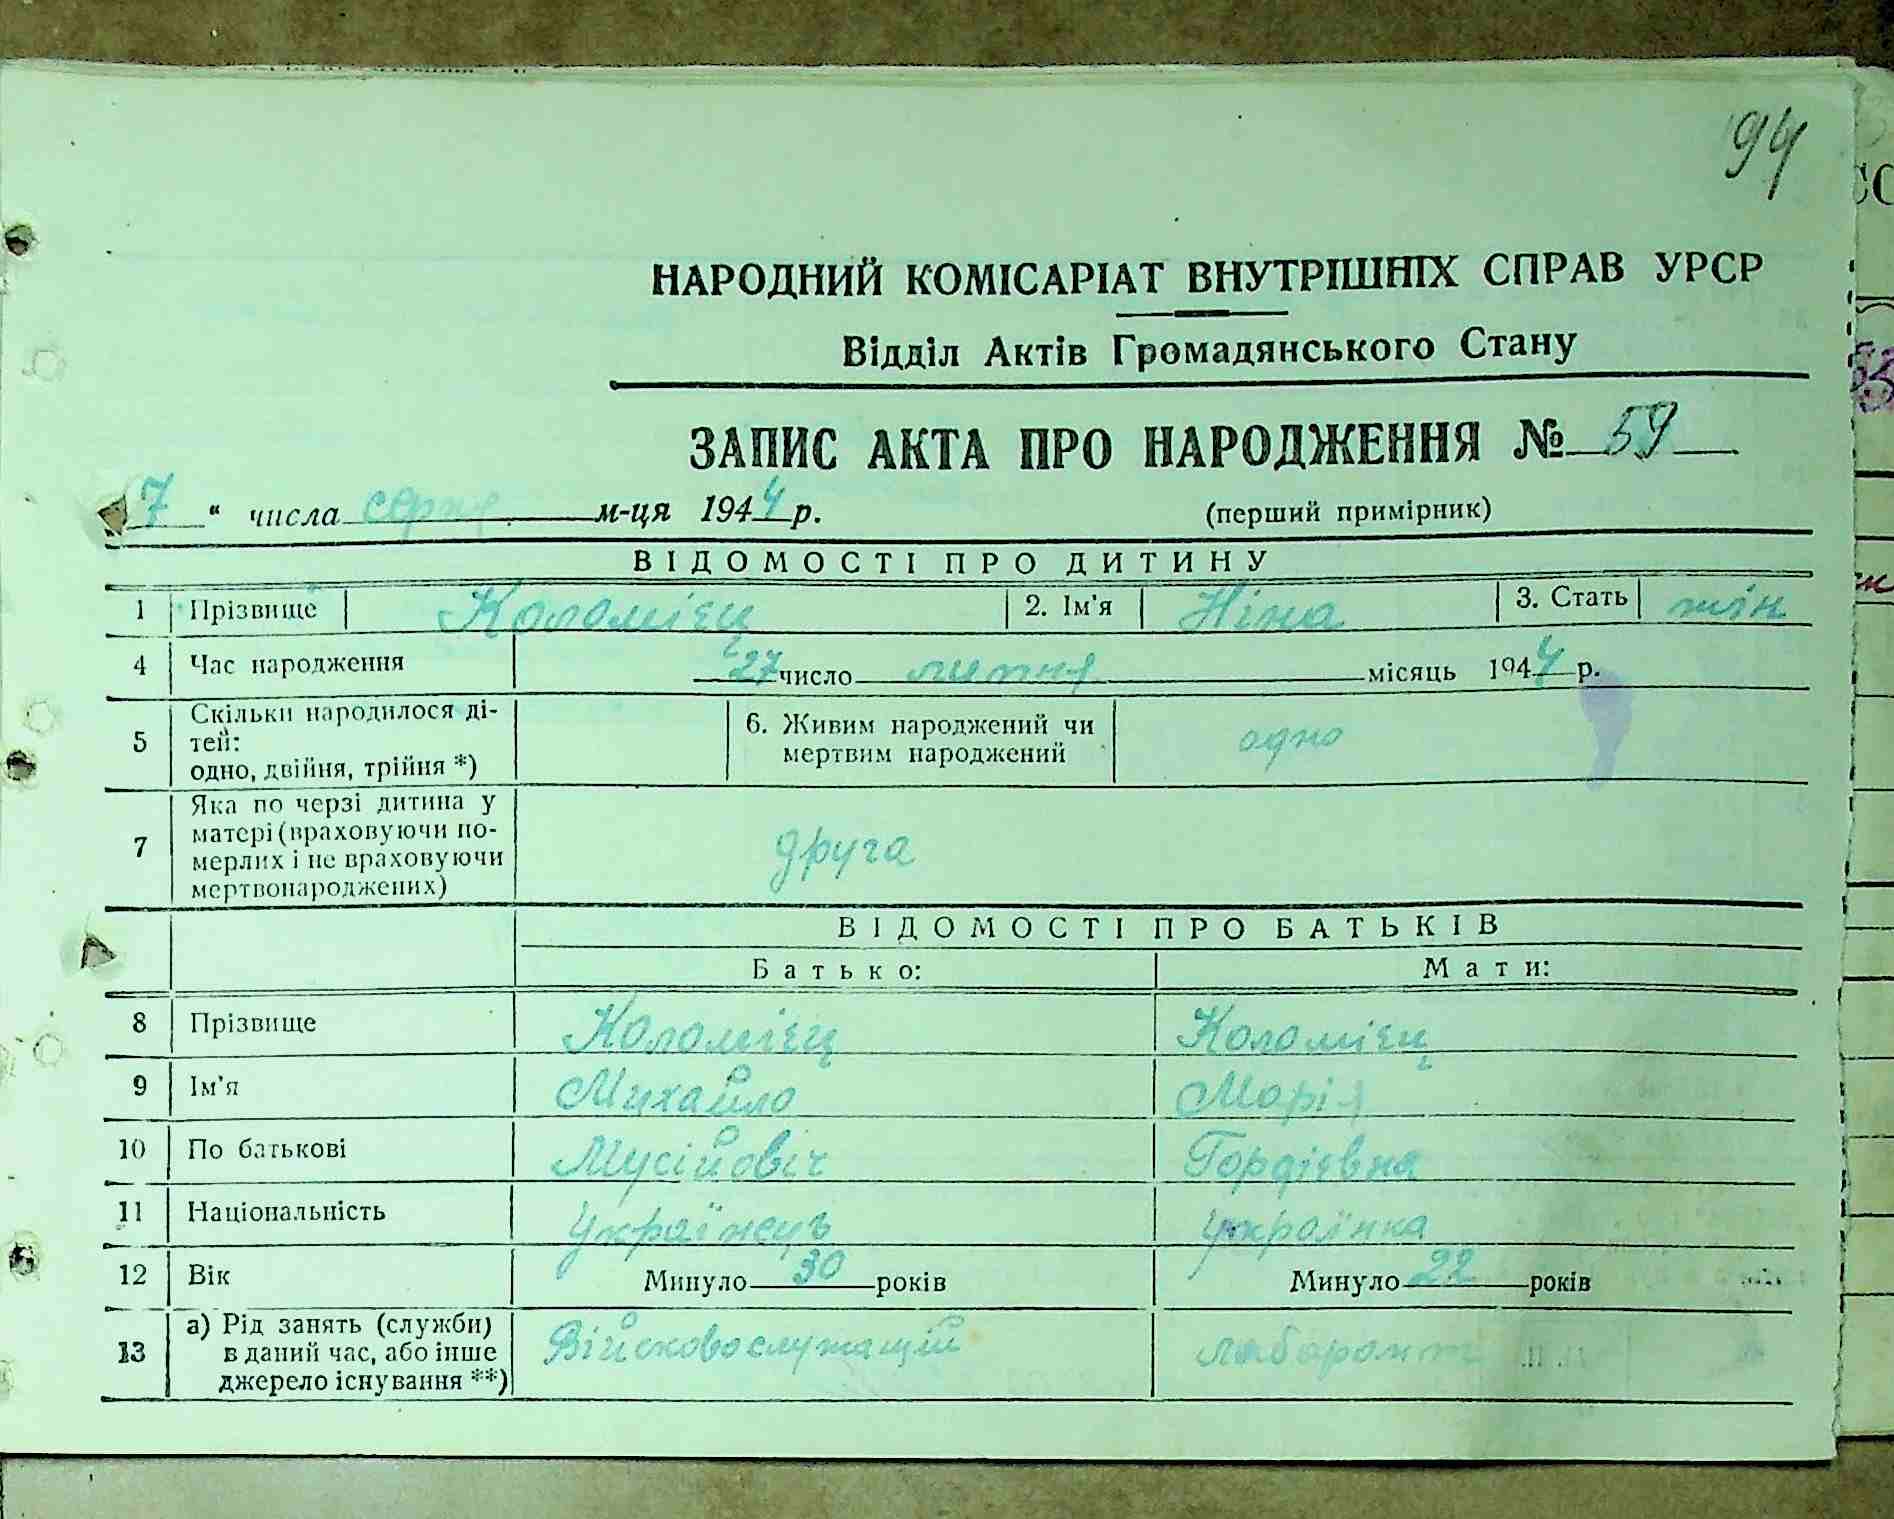 94
НАРОДНИЙ КОМІСАРІАТ ВНУТРІШНІХ СПРАВ УРСР
Відділ Актів Громадянського Стану
ЗАПИС АКТА ПРО НАРОДЖЕННЯ № 59
7 " числа серпня м-ця 1944 р. (перший примірник)
ВІДОМОСТІ ПРО ДИТИНУ
1 Прізвище Коломієц 2. Ім'я Ніна 3. Стать жін
4 Час народження 27 число липня місяць 1944 р.
5 Скільки народилося ді-
тей:
одно, двійня, трійня *)
6. Живим народжений чи
мертвим народжений
одно
7 Яка по черзі дитина у
матері (враховуючи по-
мерлих і не враховуючи
мертвонароджених)
друга
ВІДОМОСТІ ПРО БАТЬКІВ
Батько: Мати:
8 Прізвище Коломієц Коломієц
9 Ім'я Михайло Марія
10 По батькові Мусійовіч Гордієвна
11 Національність Українець Українка
12 Вік Минуло 30 років Минуло 22 років
13 а) Рід занять (служби)
в даний час, або інше
джерело існування **)
Військовослужащий лаборант